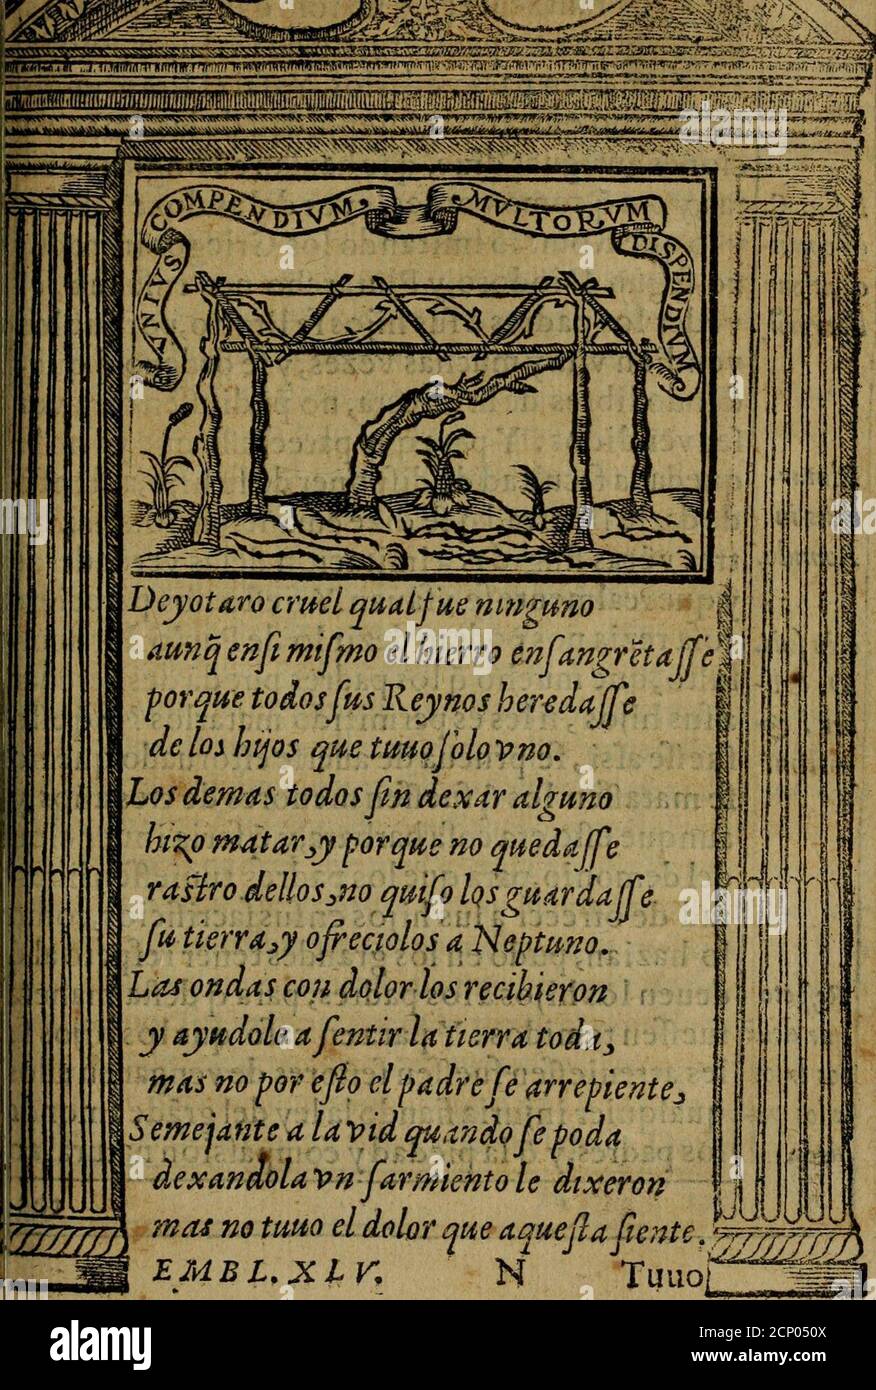 VNIVS COMPENDIVM, MVLTORVM DISPENDIVM
Deyotaro cruel qual fue ninguno
aunq̃ ensi miſmo el hierro enſangrẽtaſſe
porque todos ſus Reynos heredaſſe
de los hijos que tuuo ſolo vno.
Los demas todos ſin dexar alguno
hizo matar, y porque no quedaſſe
raſtro dellos, no quiſo los guardaſſe
ſu tierra, y ofreciolos a Neptuno.
Las ondas con dolor los recibieron
y ayudole a ſentir la tierra toda,
mas no por eſto el padre ſe arrepiente,
Semejante a la vid quando ſe poda
dexandola vn ſarmiento le dixeron
mas no tuuo el dolor que aqueſta ſiente.
EMBL. XLV. N Tuuo
alamy
Image ID: 2CP050X
www.alamy.com